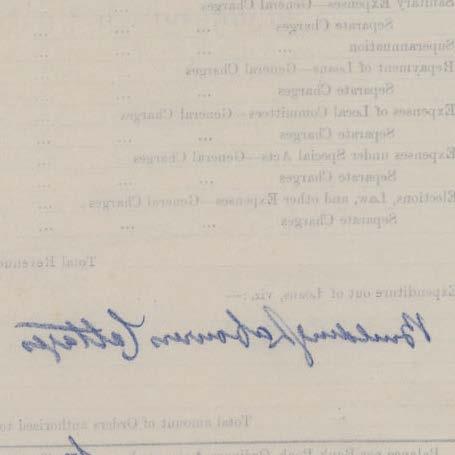 Sanitary Expenses—General Charges ... ...
Separate Charges ... ... ...
Superannuation ... ... ...
Repayment of Loans—General Charges ...
Separate Charges ... ...
Expenses of Local Committees—General Charges ...
Separate Charges ... ... ...
Expenses under Special Acts—General Charges ...
Separate Charges ... ... ...
Elections, Law, and other Expenses—General Charges ...
Separate Charges ... ... ...
Total Revenue
Expenditure out of Loans, viz.:—
Building Labourers Cottages
Total amount of Orders authorised to
Balance per Bank Pass Book